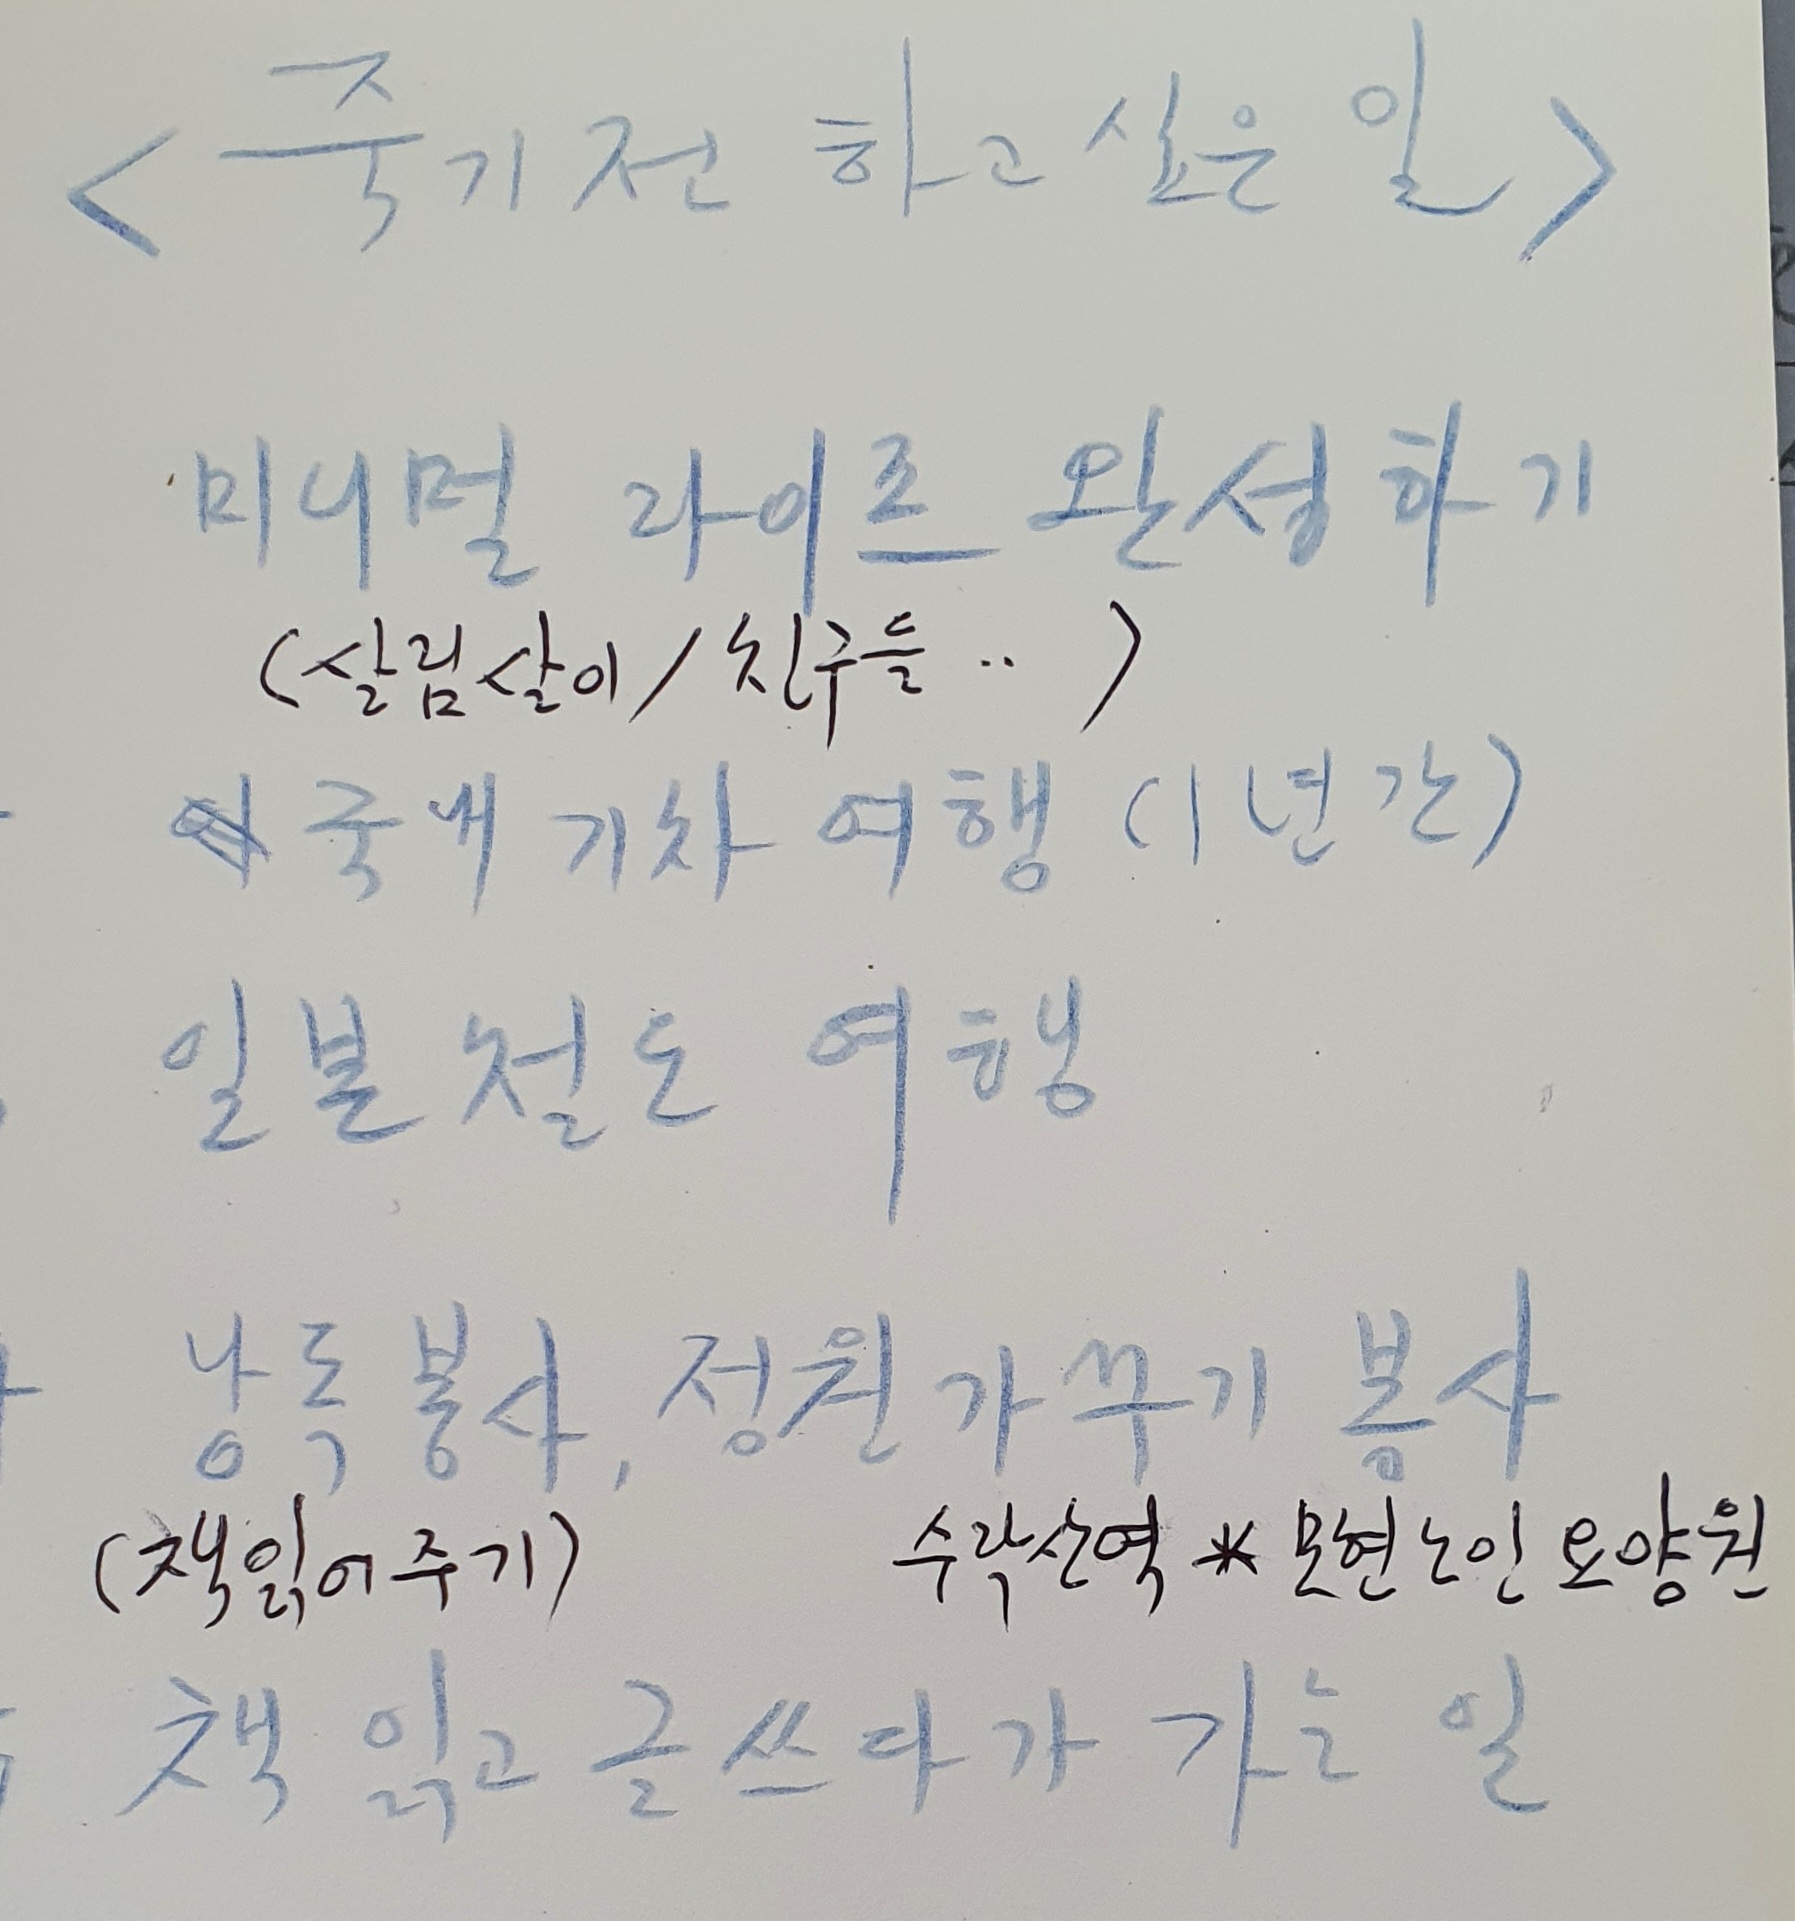 <죽기전 하고 싶은 일>
미니멀 라이프 완성하기
(살림살이/친구들 .. )
국내 기차 여행 (1년간)
일본 철도 여행
낭독봉사, 정원 가꾸기 봉사
(책읽어 주기) 수락산역 * 모현 노인 요양원
책 읽고 글쓰다가 가는 일